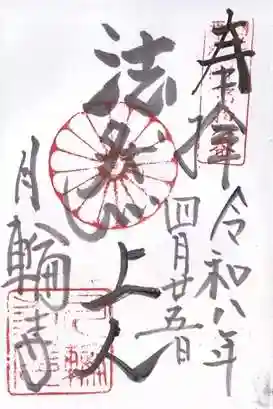 奉拝
令和八年
四月廿五日
法然上人
月輪寺